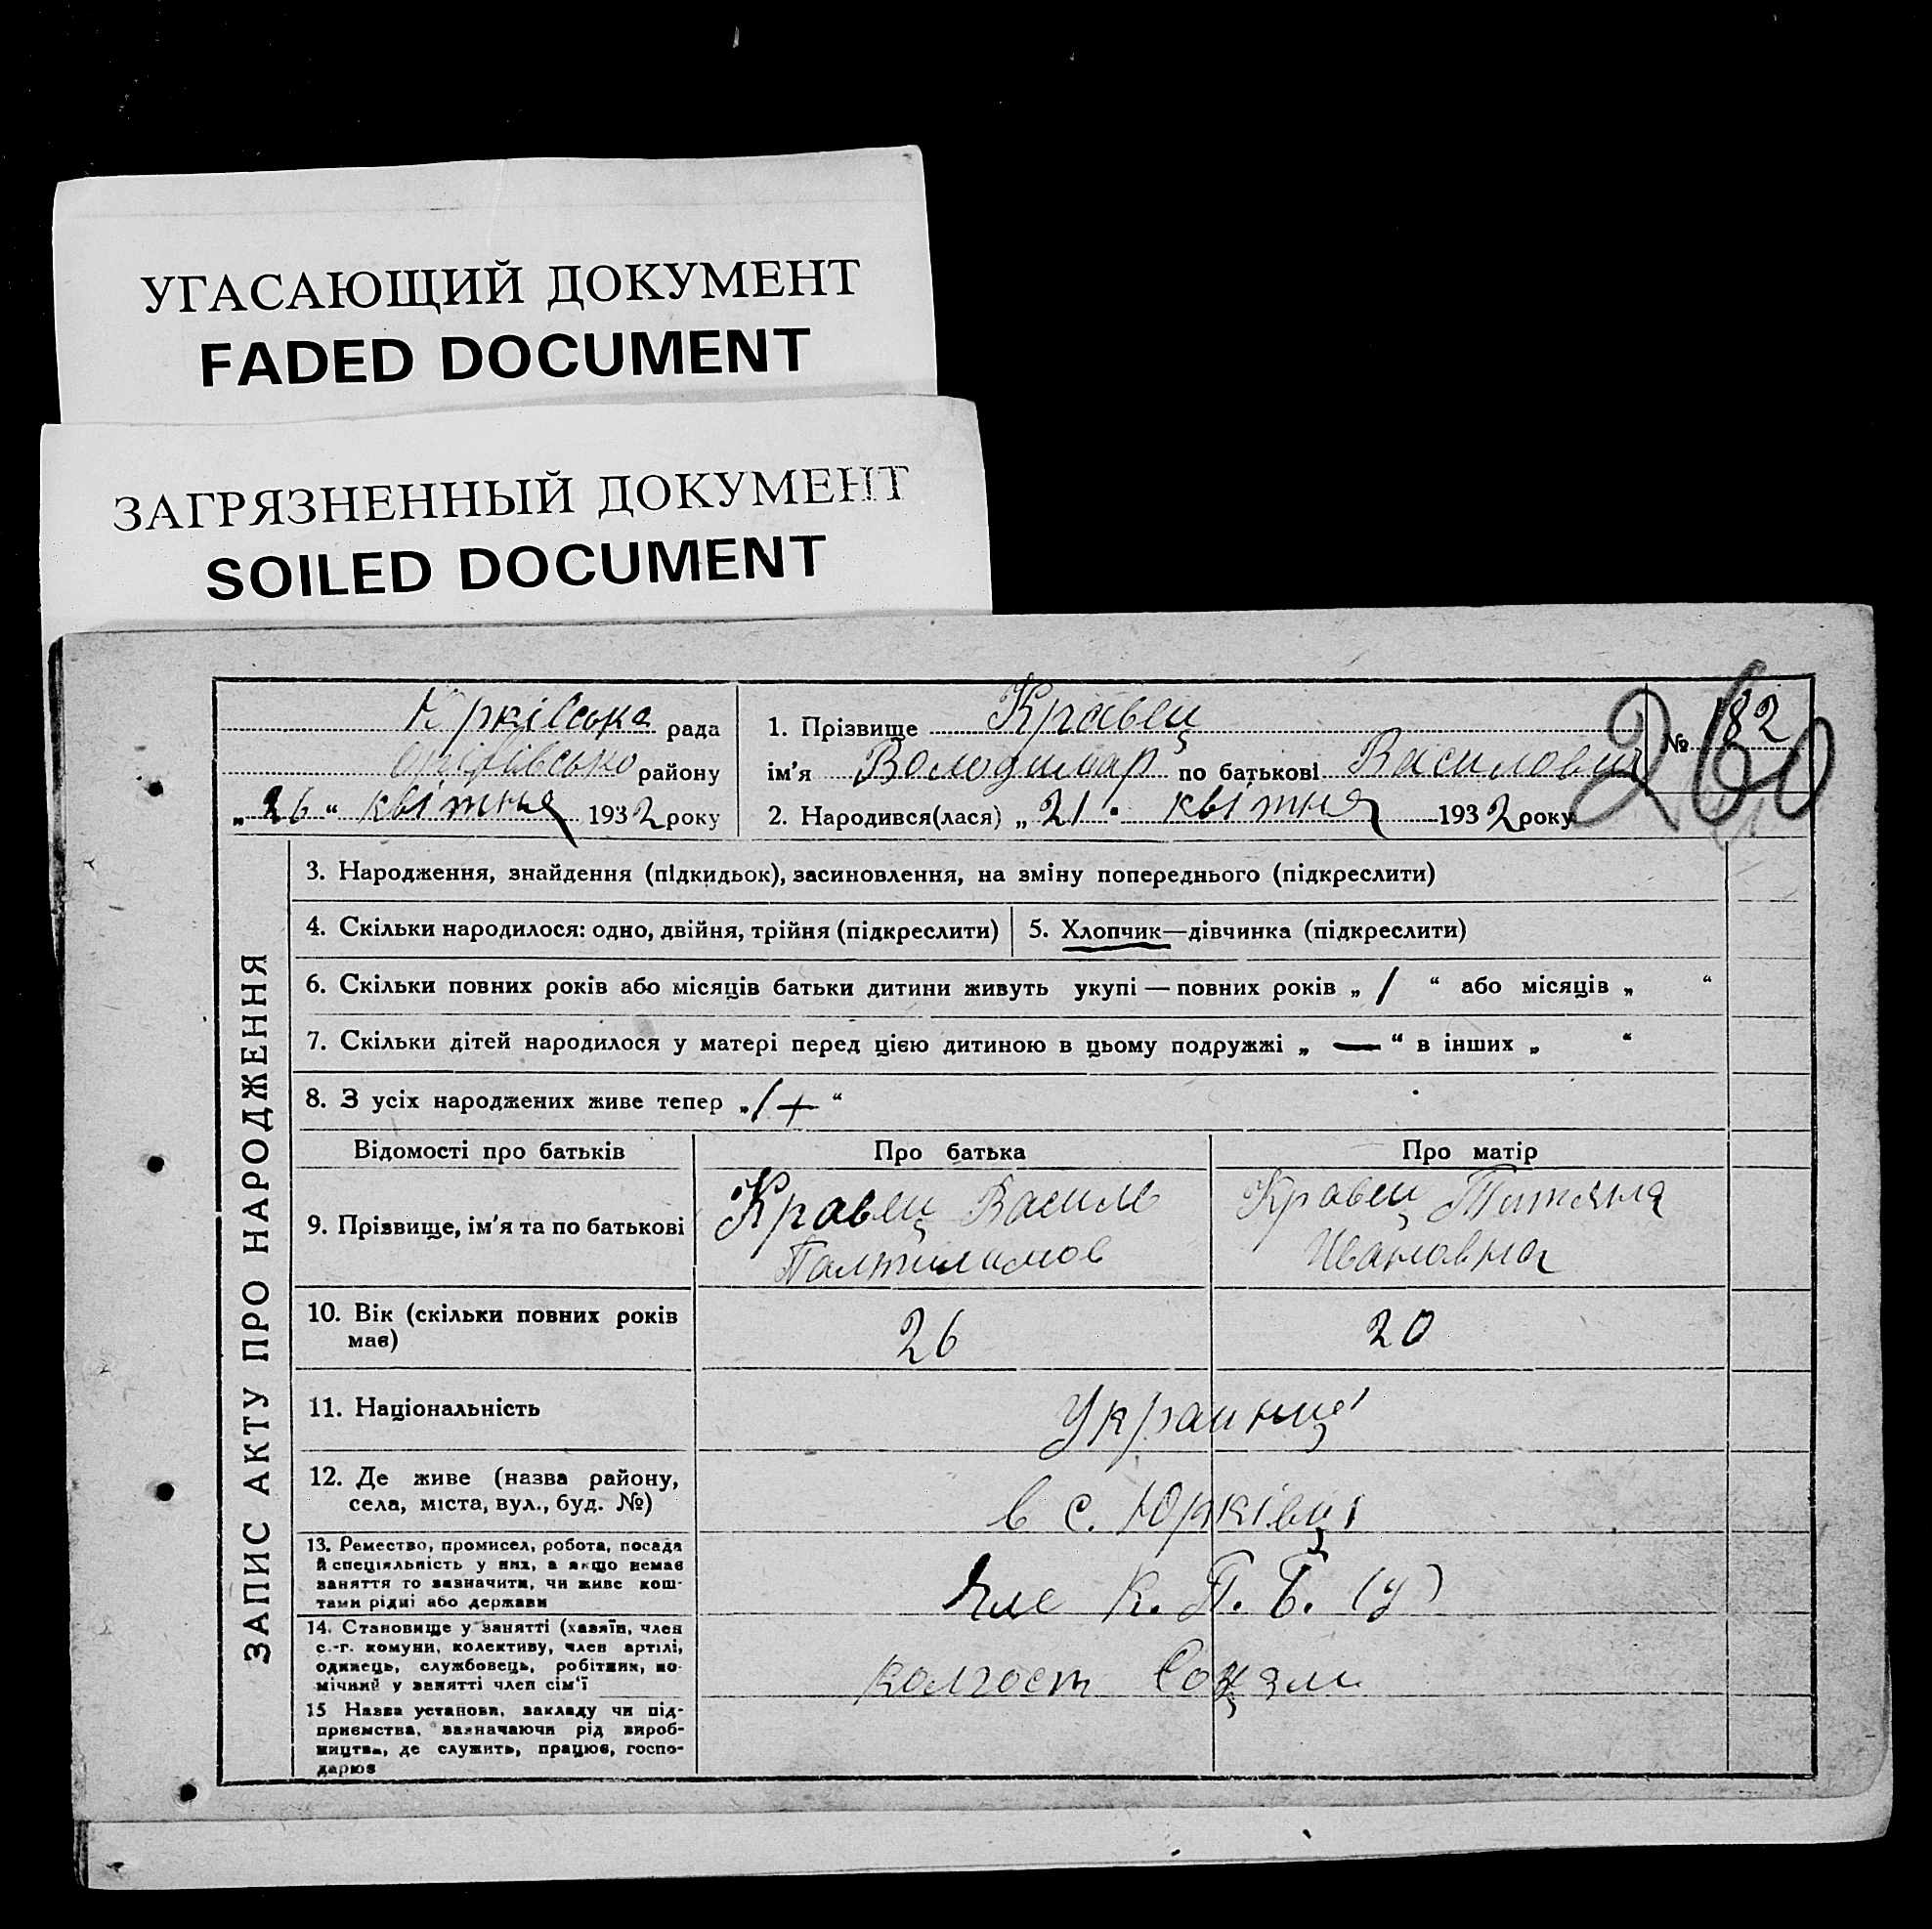 УГАСАЮЩИЙ ДОКУМЕНТ
FADED DOCUMENT
ЗАГРЯЗНЕННЫЙ ДОКУМЕНТ
SOILED DOCUMENT
Юрківська рада
району
„26“ квітня 1932 року
1. Прізвище Кравец
ім'я Володимир по батькові Василовия
2. Народився(лася) „21. квітня 1932 року
№ 82
260
ЗАПИС АКТУ ПРО НАРОДЖЕННЯ
3. Народження, знайдення (підкидьок), засиновлення, на зміну попереднього (підкреслити)
4. Скільки народилося: одно, двійня, трійня (підкреслити)
5. Хлопчик—дівчинка (підкреслити)
6. Скільки повних років або місяців батьки дитини живуть укупі — повних років „ 1 “ або місяців „ “
7. Скільки дітей народилося у матері перед цією дитиною в цьому подружжі „ — “ в інших „ “
8. З усіх народжених живе тепер „1+“
Відомості про батьків
Про батька
Про матір
9. Прізвище, ім'я та по батькові
Кравец Василь
Кравец Титяна
Ивановна
10. Вік (скільки повних років
має)
26
20
11. Національність
Украинці
12. Де живе (назва району,
села, міста, вул., буд. №)
в с. Юрківці
13. Ремество, промисел, робота, посада
й спеціяльність у них, а якщо немає
заняття то зазначити, чи живе кош-
тами рідні або держави
Чле К. П. Б. (у)
14. Становище у занятті (хазяїн, член
с.-г. комуни, колективу, член артілі,
одинець, службовець, робітник, по-
мічний у занятті член сім'ї
колгосп
15 Назва установи, закладу чи під-
приємства, зазначаючи рід вироб-
ництва, де служить, працює, госпо-
дарює